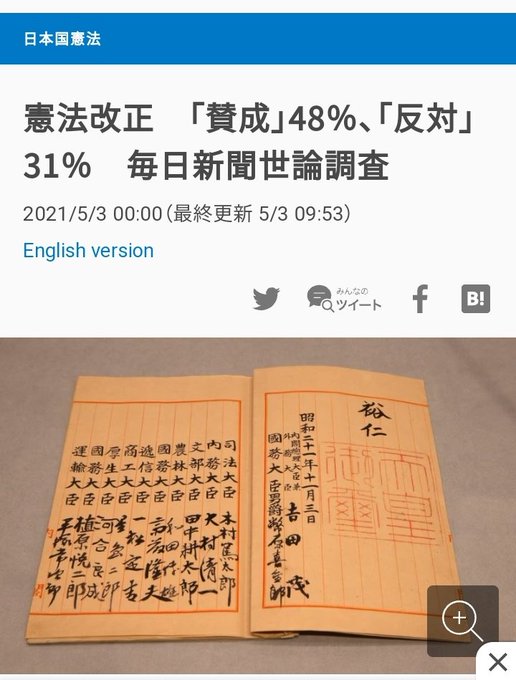 日本国憲法
憲法改正　「賛成」48%、「反対」
31%　毎日新聞世論調査
2021/5/3 00:00（最終更新 5/3 09:53）
English version
みんなの
ツイート
B!
裕仁
天皇
御璽
昭和二十一年十一月三日
内閣總理大臣兼
外務大臣 吉田茂
國務大臣 男爵 幣原喜重郎
司法大臣 木村篤太郎
内務大臣 大村清一
文部大臣 田中耕太郎
農林大臣 和田博雄
國務大臣 斎藤隆夫
逓信大臣 一松定吉
商工大臣 星島二郎
厚生大臣 河合良成
國務大臣 植原悦二郎
運輸大臣 平塚常次郎